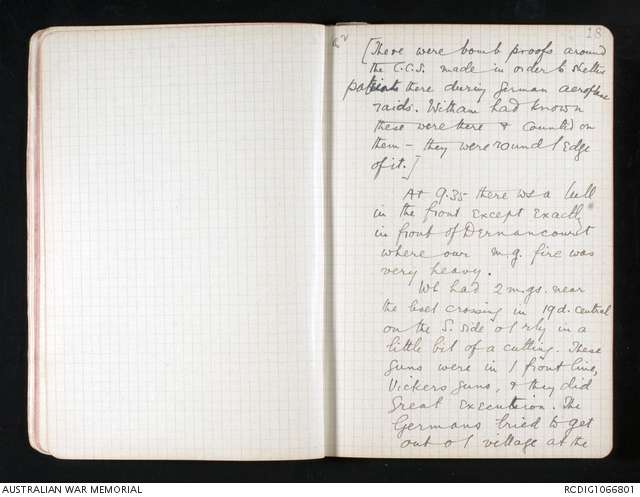 18
[There were bomb proofs around
the C.C.S. made in order to shelter
patients there during German aeroplane
raids. Witham had known
these were there & counted on
them – they were round / edge
of it.]
At 9.35 there was a lull
in the front except exactly
in front of Dernancourt
where our m.g. fire was
very heavy.
We had 2 m.gs. near
the level crossing in 19d. central
on the S. side o / rly in a
little bit of a cutting. These
guns were in / front line,
Vickers guns, & they did
great execution. The
Germans tried to get
out o / village at the
AUSTRALIAN WAR MEMORIAL
RCDIG1066801